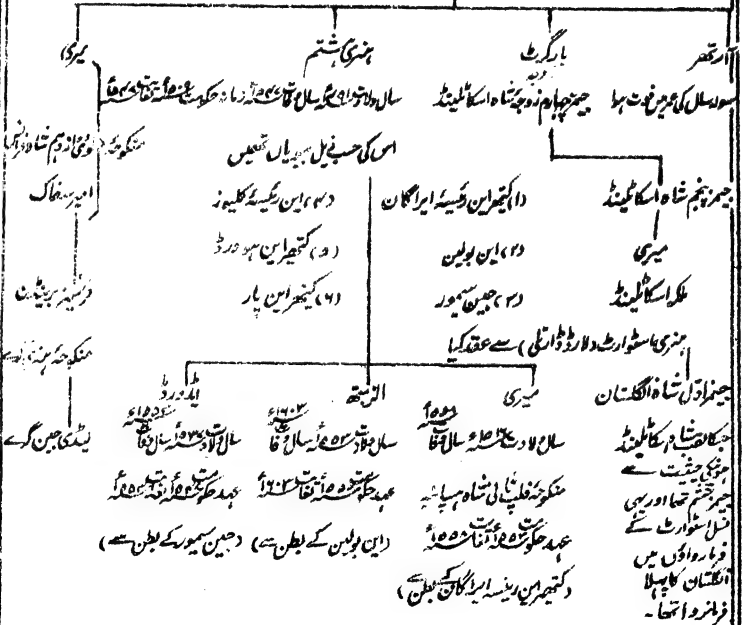 آرتھر
سولہ سال کی عمر میں فوت ہوا
مارگرٹ
جیمز چہارم زوجہ شاہ اسکاٹلینڈ
جیمز پنجم شاہ اسکاٹلینڈ
میری
ملکہ اسکاٹلینڈ
ہنری اسٹوارٹ (لارڈ ڈارنلی) سے عقد کیا
جیمز اول شاہ انگلستان
جسکا لقب شاہ اسکاٹلینڈ
ہونیکی حیثیت سے
جیمز ششم تھا اور یہی
نسل اسٹوارٹ کے
فرمارواؤں میں
انگلستان کا پہلا
فرمانروا تھا۔
ہنری ہشتم
سال ولادت ۱۴۹۱ء سال وفات ۱۵۴۷ء زمانہ حکومت ۱۵۰۹ء لغایت ۱۵۴۷ء
اس کی حسب ذیل بیبیاں تھیں
(۱) کیتھراین رئیسۂ ایراگان
(۲) این بولین
(۳) جین سیمور
(۴) این رئیسۂ کلیوز
(۵) کتھیراین ہورڈ
(۶) کیتھراین پار
میری
سال ولادت ۱۵۱۶ء سال وفات ۱۵۵۸ء
منکوحہ فلپ ثانی شاہ ہسپانیہ
عہد حکومت ۱۵۵۳ء لغایت ۱۵۵۸ء
(کتھیراین رئیسہ ایراگان کے بطن سے)
الزبتھ
سال ولادت ۱۵۳۳ء سال وفات ۱۶۰۳ء
عہد حکومت ۱۵۵۸ء لغایت ۱۶۰۳ء
(این بولین کے بطن سے)
ایڈورڈ
سال ولادت ۱۵۳۷ء سال وفات ۱۵۵۳ء
عہد حکومت ۱۵۴۷ء لغایت ۱۵۵۳ء
(جین سیمور کے بطن سے)
میری
منکوحہ لوئی دوازدہم شاہ فرانس
امیر سفاک
فرنسیز برینڈن
منکوحہ ہنری
لیڈی جین گرے